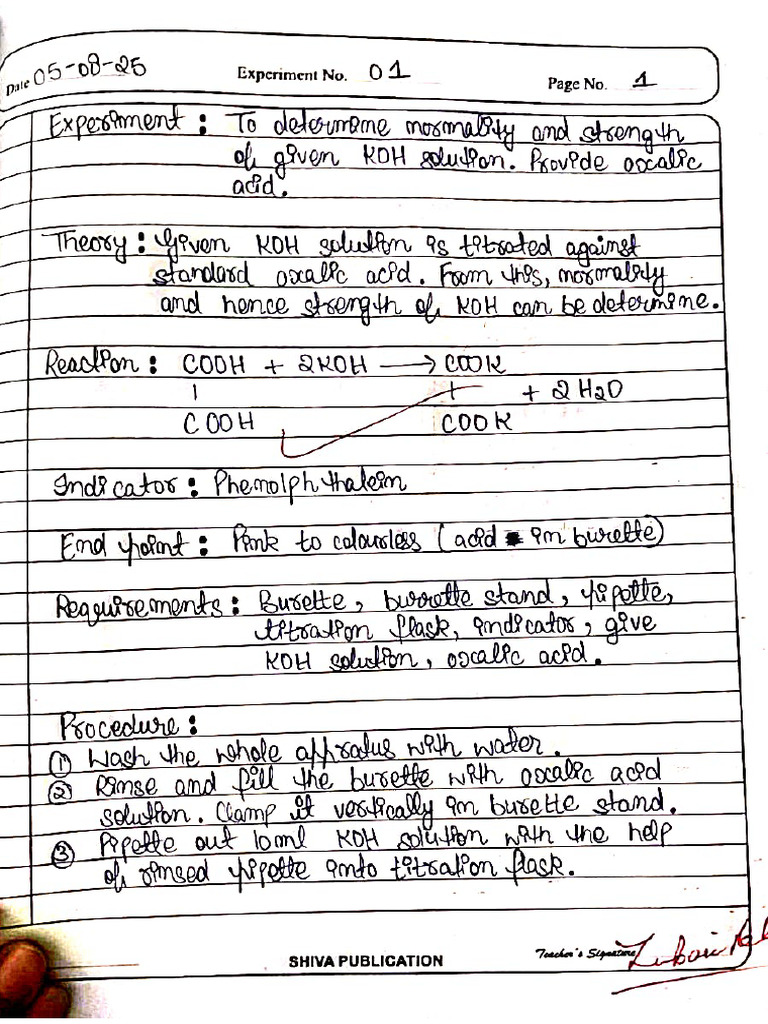 Date 05-08-25 Experiment No. 01 Page No. 1
Experiment : To determine normality and strength
of given KOH solution. Provide oxcalic
acid.
Theory : Given KOH solution is titrated against
standard oxcalic acid. From this, normality
and hence strength of KOH can be determine.
Reaction : COOH + 2KOH → COOK
| | + 2H2O
COOH COOK
Indicator : Phenolphthalein
End point : Pink to colourless (acid in burette)
Requirements : Burette, burrette stand, pipette,
titration flask, indicator, give
KOH solution, oxcalic acid.
Procedure :
① Wash the whole appratus with water.
② Rinse and fill the burette with oxcalic acid
solution. Clamp it vertically in burette stand.
③ Pipette out 10ml KOH solution with the help
of rinsed pipette into titration flask.
SHIVA PUBLICATION Teacher's Signature